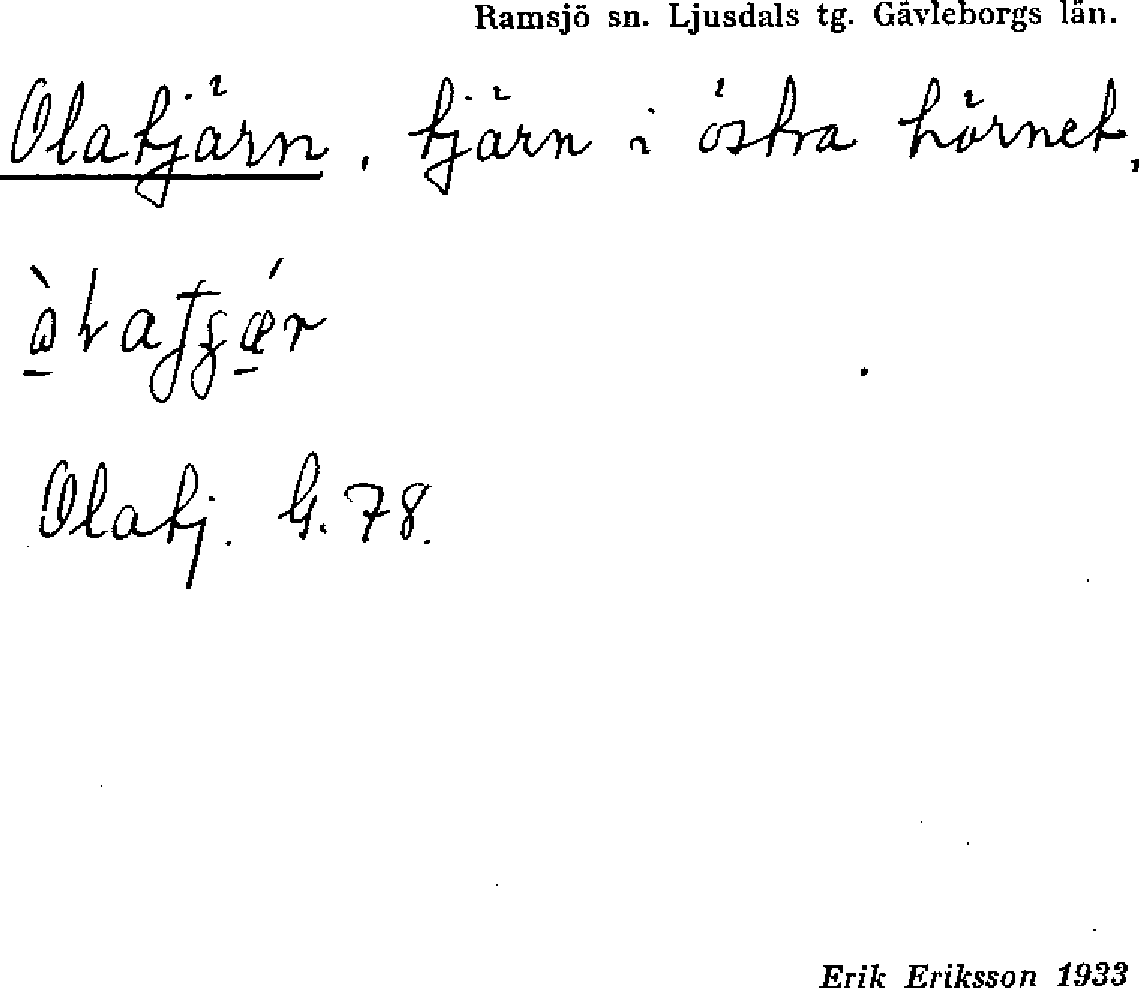 Ramsjö sn. Ljusdals tg. Gävleborgs län.
Olatjärn, tjärn i östra hörnet,
Olatj. G. 78.
Erik Eriksson 1933